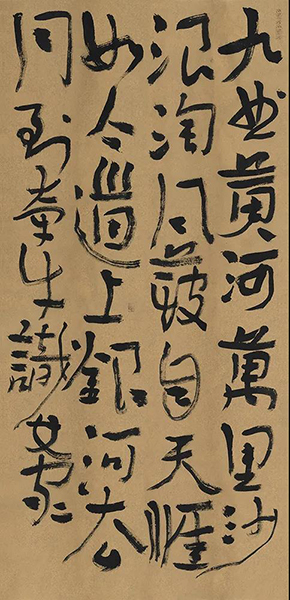 九曲黃河萬里沙
浪淘風簸自天涯
如今上銀河去
同到牽牛織女家